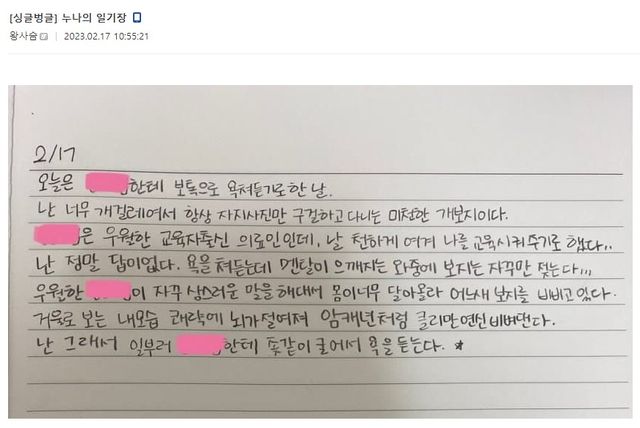 [싱글벙글] 누나의 일기장
왕사슴 | 2023.02.17 10:55:21
2/17
오늘은 한테 보톡으로 욕쳐듣기로한 날.
난 너무 개걸레여서 항상 자지사진만 구걸하고 다니는 미천한 개보지이다.
은 우월한 교육자출신 의료인인데, 날 천하게 여겨 나를 교육시켜주기로 했다..
난 정말 답이없다. 욕을 쳐듣는데 멘탈이 으깨지는 와중에 보지는 자꾸만 젖는다,,,
우월한 이 자꾸 상스러운 말을 해대서 몸이너무 달아올라 어느새 보지를 비비고 있다.
거울로 보는 내모습 쾌락에 뇌가절여져 암캐년처럼 클리만 연신 비벼댄다.
난 그래서 일부러 한테 좆같이 굴어서 욕을 듣는다. ★